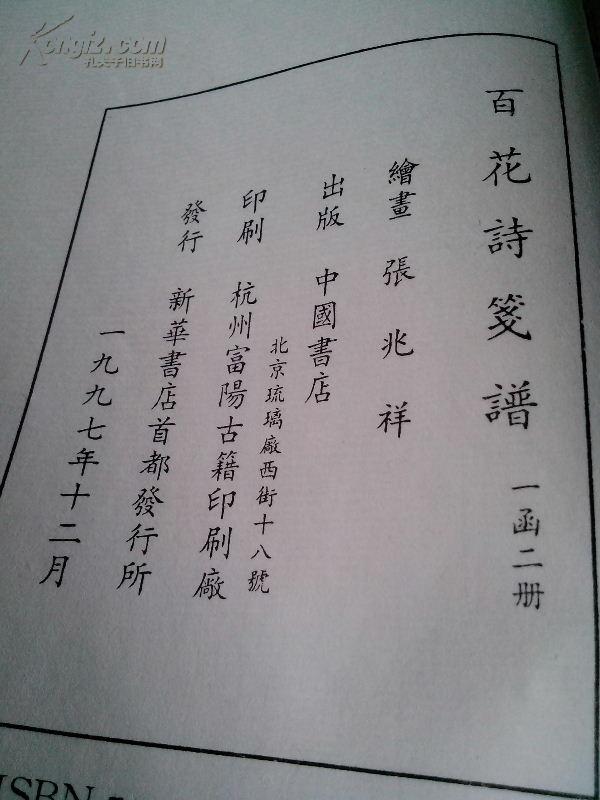 百花詩箋譜 一函二册
繪畫 張兆祥
出版 中國書店
北京琉璃廠西街十八號
印刷 杭州富陽古籍印刷廠
發行 新華書店首都發行所
一九九七年十二月
ISBN
Kongfz.com
孔夫子旧书网